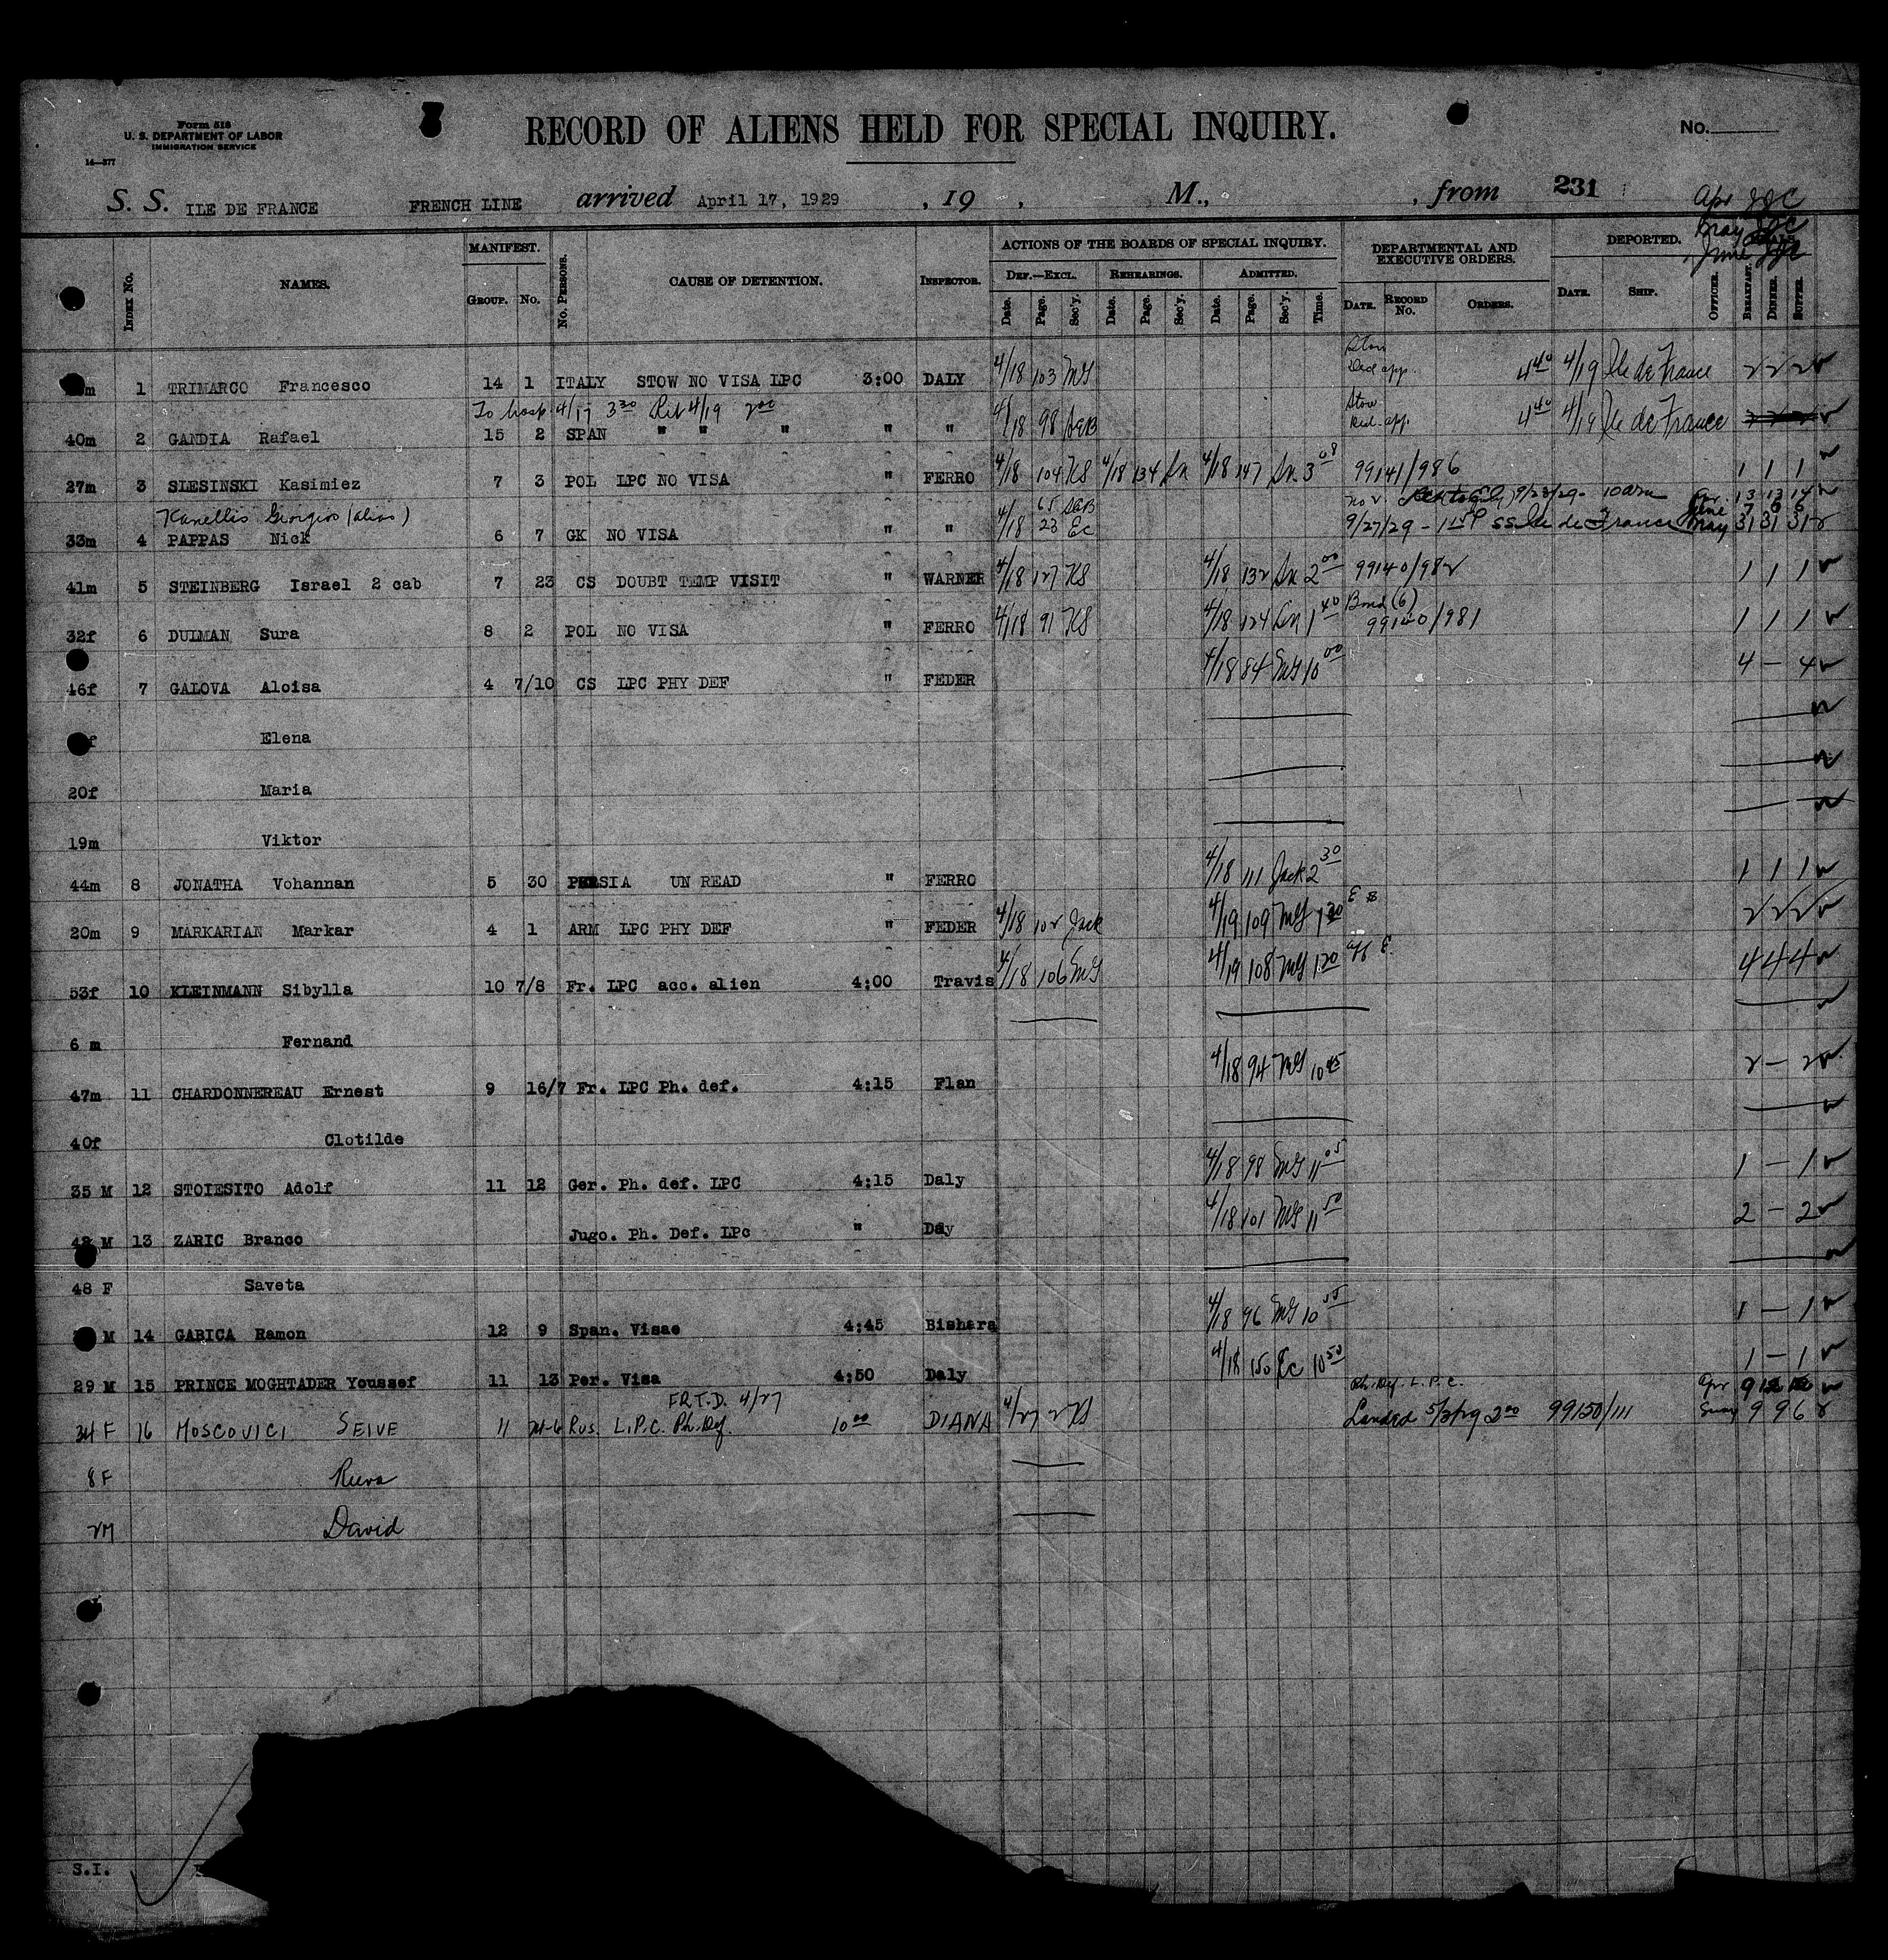 Form 518
U. S. DEPARTMENT OF LABOR
IMMIGRATION SERVICE
14—377
RECORD OF ALIENS HELD FOR SPECIAL INQUIRY.
No.
S. S. ILE DE FRANCE FRENCH LINE arrived April 17, 1929 , 19 , M., , from 231
Apr
May
June
INDEX No. NAMES. MANIFEST. GROUP. No. No. PERSONS. CAUSE OF DETENTION. INSPECTOR. ACTIONS OF THE BOARDS OF SPECIAL INQUIRY. DEPARTMENTAL AND EXECUTIVE ORDERS. DEPORTED.
DEF.—EXCL. REHEARINGS. ADMITTED.
Date. Page. Sec'y. Date. Page. Sec'y. Date. Page. Sec'y. Time. DATE. RECORD No. ORDERS. DATE. SHIP. OFFICER. BREAKFAST. DINNER. SUPPER.
m 1 TRIMARCO Francesco 14 1 ITALY STOW NO VISA LPC 3:00 DALY 4/18 103 MG Stow 4 40 4/19 Ile de France 2 2 2
To hosp 4/17 3 30 4/19 2 00
40m 2 GANDIA Rafael 15 2 SPAN " " " " " 4/18 98 Stow 4 40 4/19 Ile de France
27m 3 SIESINSKI Kasimiez 7 3 POL LPC NO VISA " FERRO 4/18 104 KS 4/18 134 4/18 147 3 08 99141/986 1 1 1
Kanellis Georgios (alias)
33m 4 PAPPAS Nick 6 7 GK NO VISA " " 4/18 65 23 Ec 9/27/29 - SS Ile de France May 31 31 31
41m 5 STEINBERG Israel 2 cab 7 23 CS DOUBT TEMP VISIT " WARNER 4/18 127 KS 4/18 132 2 00 99140/982 1 1 1
32f 6 DULMAN Sura 8 2 POL NO VISA " FERRO 4/18 91 KS 4/18 124 1 40 Bond (6) 99140/981 1 1 1
46f 7 GALOVA Aloisa 4 7/10 CS LPC PHY DEF " FEDER 4/18 84 10 00 4 - 4
f Elena
20f Maria
19m Viktor
44m 8 JONATHA Vohannan 5 30 PERSIA UN READ " FERRO 4/18 111 Jack 2 30 1 1 1
20m 9 MARKARIAN Markar 4 1 ARM LPC PHY DEF " FEDER 4/18 102 Jack 4/19 109 MG 1 20 2 2 2
53f 10 KLEINMANN Sibylla 10 7/8 Fr. LPC acc. alien 4:00 Travis 4/18 106 4/19 108 MG 1 20 4 4 4
6 m Fernand
47m 11 CHARDONNEREAU Ernest 9 16/7 Fr. LPC Ph. def. 4:15 Flan 4/18 94 MG 10 45 2 - 2
40f Clotilde
35 M 12 STOIESITO Adolf 11 12 Ger. Ph. def. LPC 4:15 Daly 4/18 98 11 05 1 - 1
M 13 ZARIC Branco Jugo. Ph. Def. LPc " Day 4/18 101 MG 11 2 - 2
48 F Saveta
M 14 GABICA Ramon 12 9 Span. Visae 4:45 Bishara 4/18 96 10 1 - 1
29 M 15 PRINCE MOGHTADER Youssef 11 13 Per. Visa 4:50 Daly 4/18 150 Ec 10 50 1 - 1
F.R.T.D. 4/27 Ph. Def. L.P.C. Apr
34 F 16 MOSCOVICI SEIVE 11 Rus. L.P.C. Ph. Def. 10 00 DIANA 4/27 2 KS Landed 2 00 99150/111 9 9 6
8 F
2 M David
S.I.